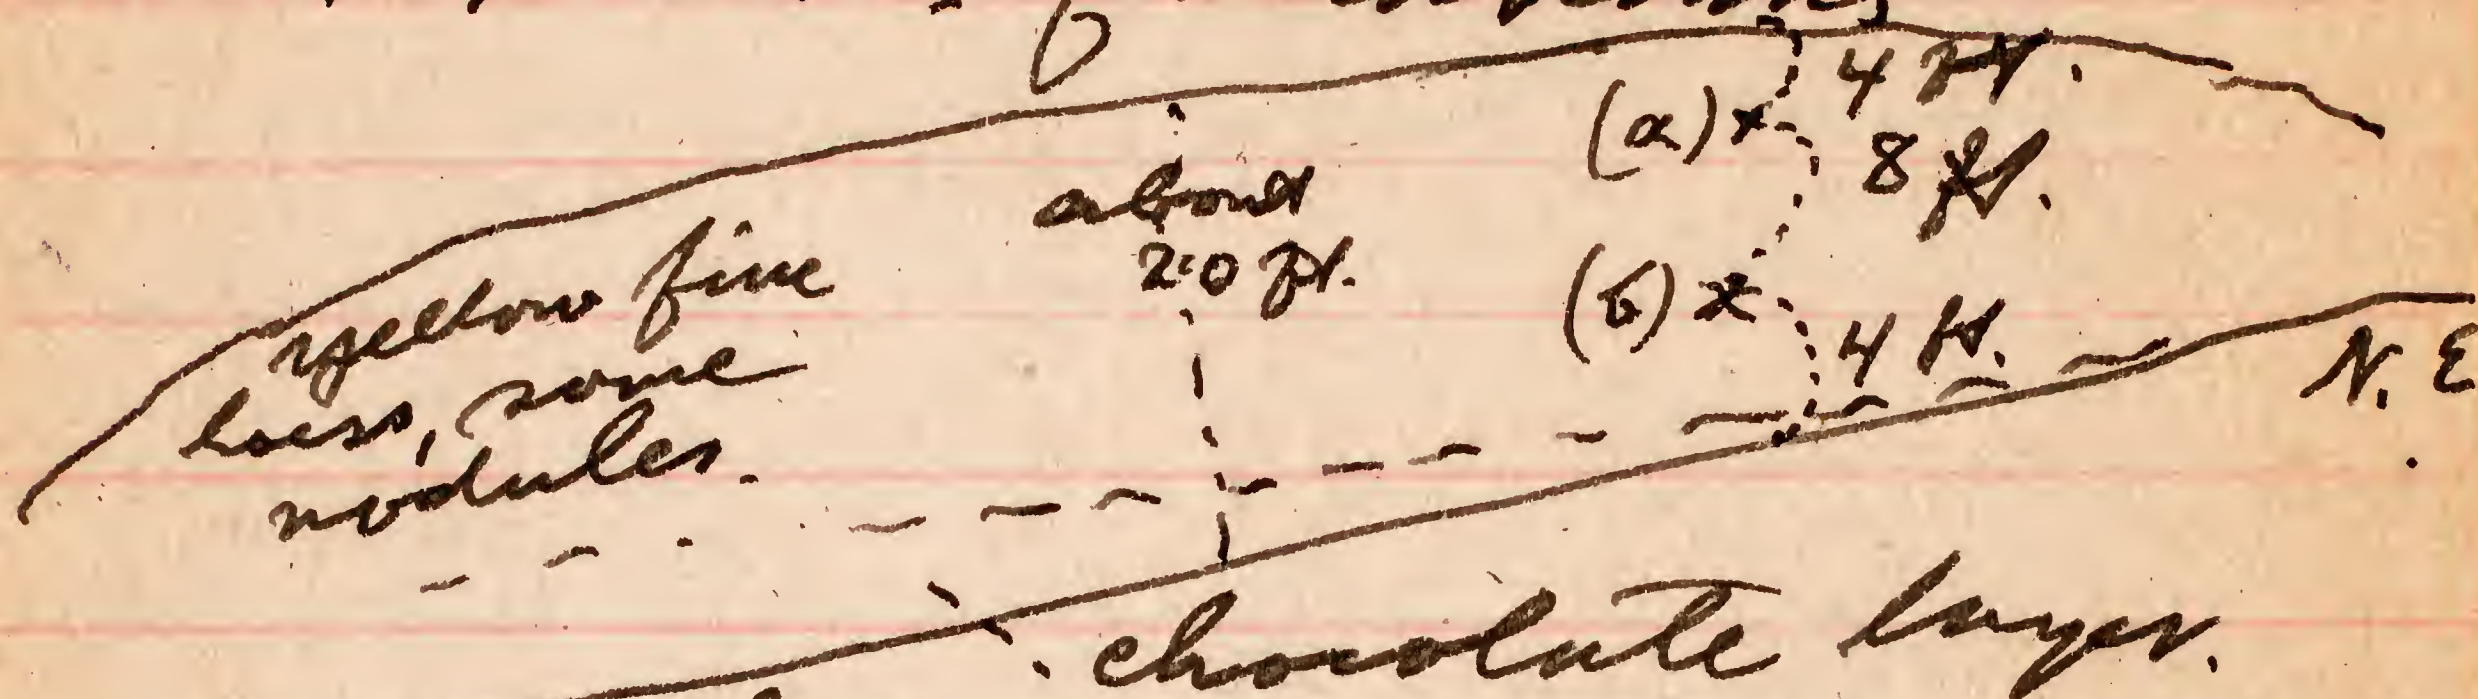 4 ft.
(a) x
8 ft.
about
20 ft.
yellow fine
loess, some
nodules.
(b) x
4 ft.
N. E.
chocolate layer.